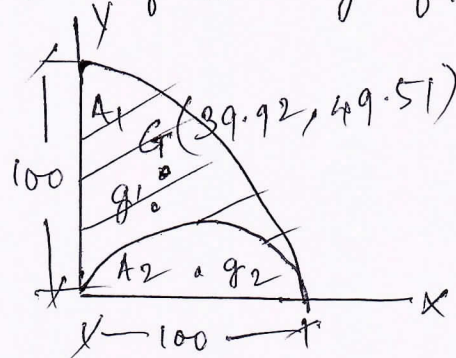 Y
A1
G (39.92, 49.51)
100
g1
A2 . g2
X
100